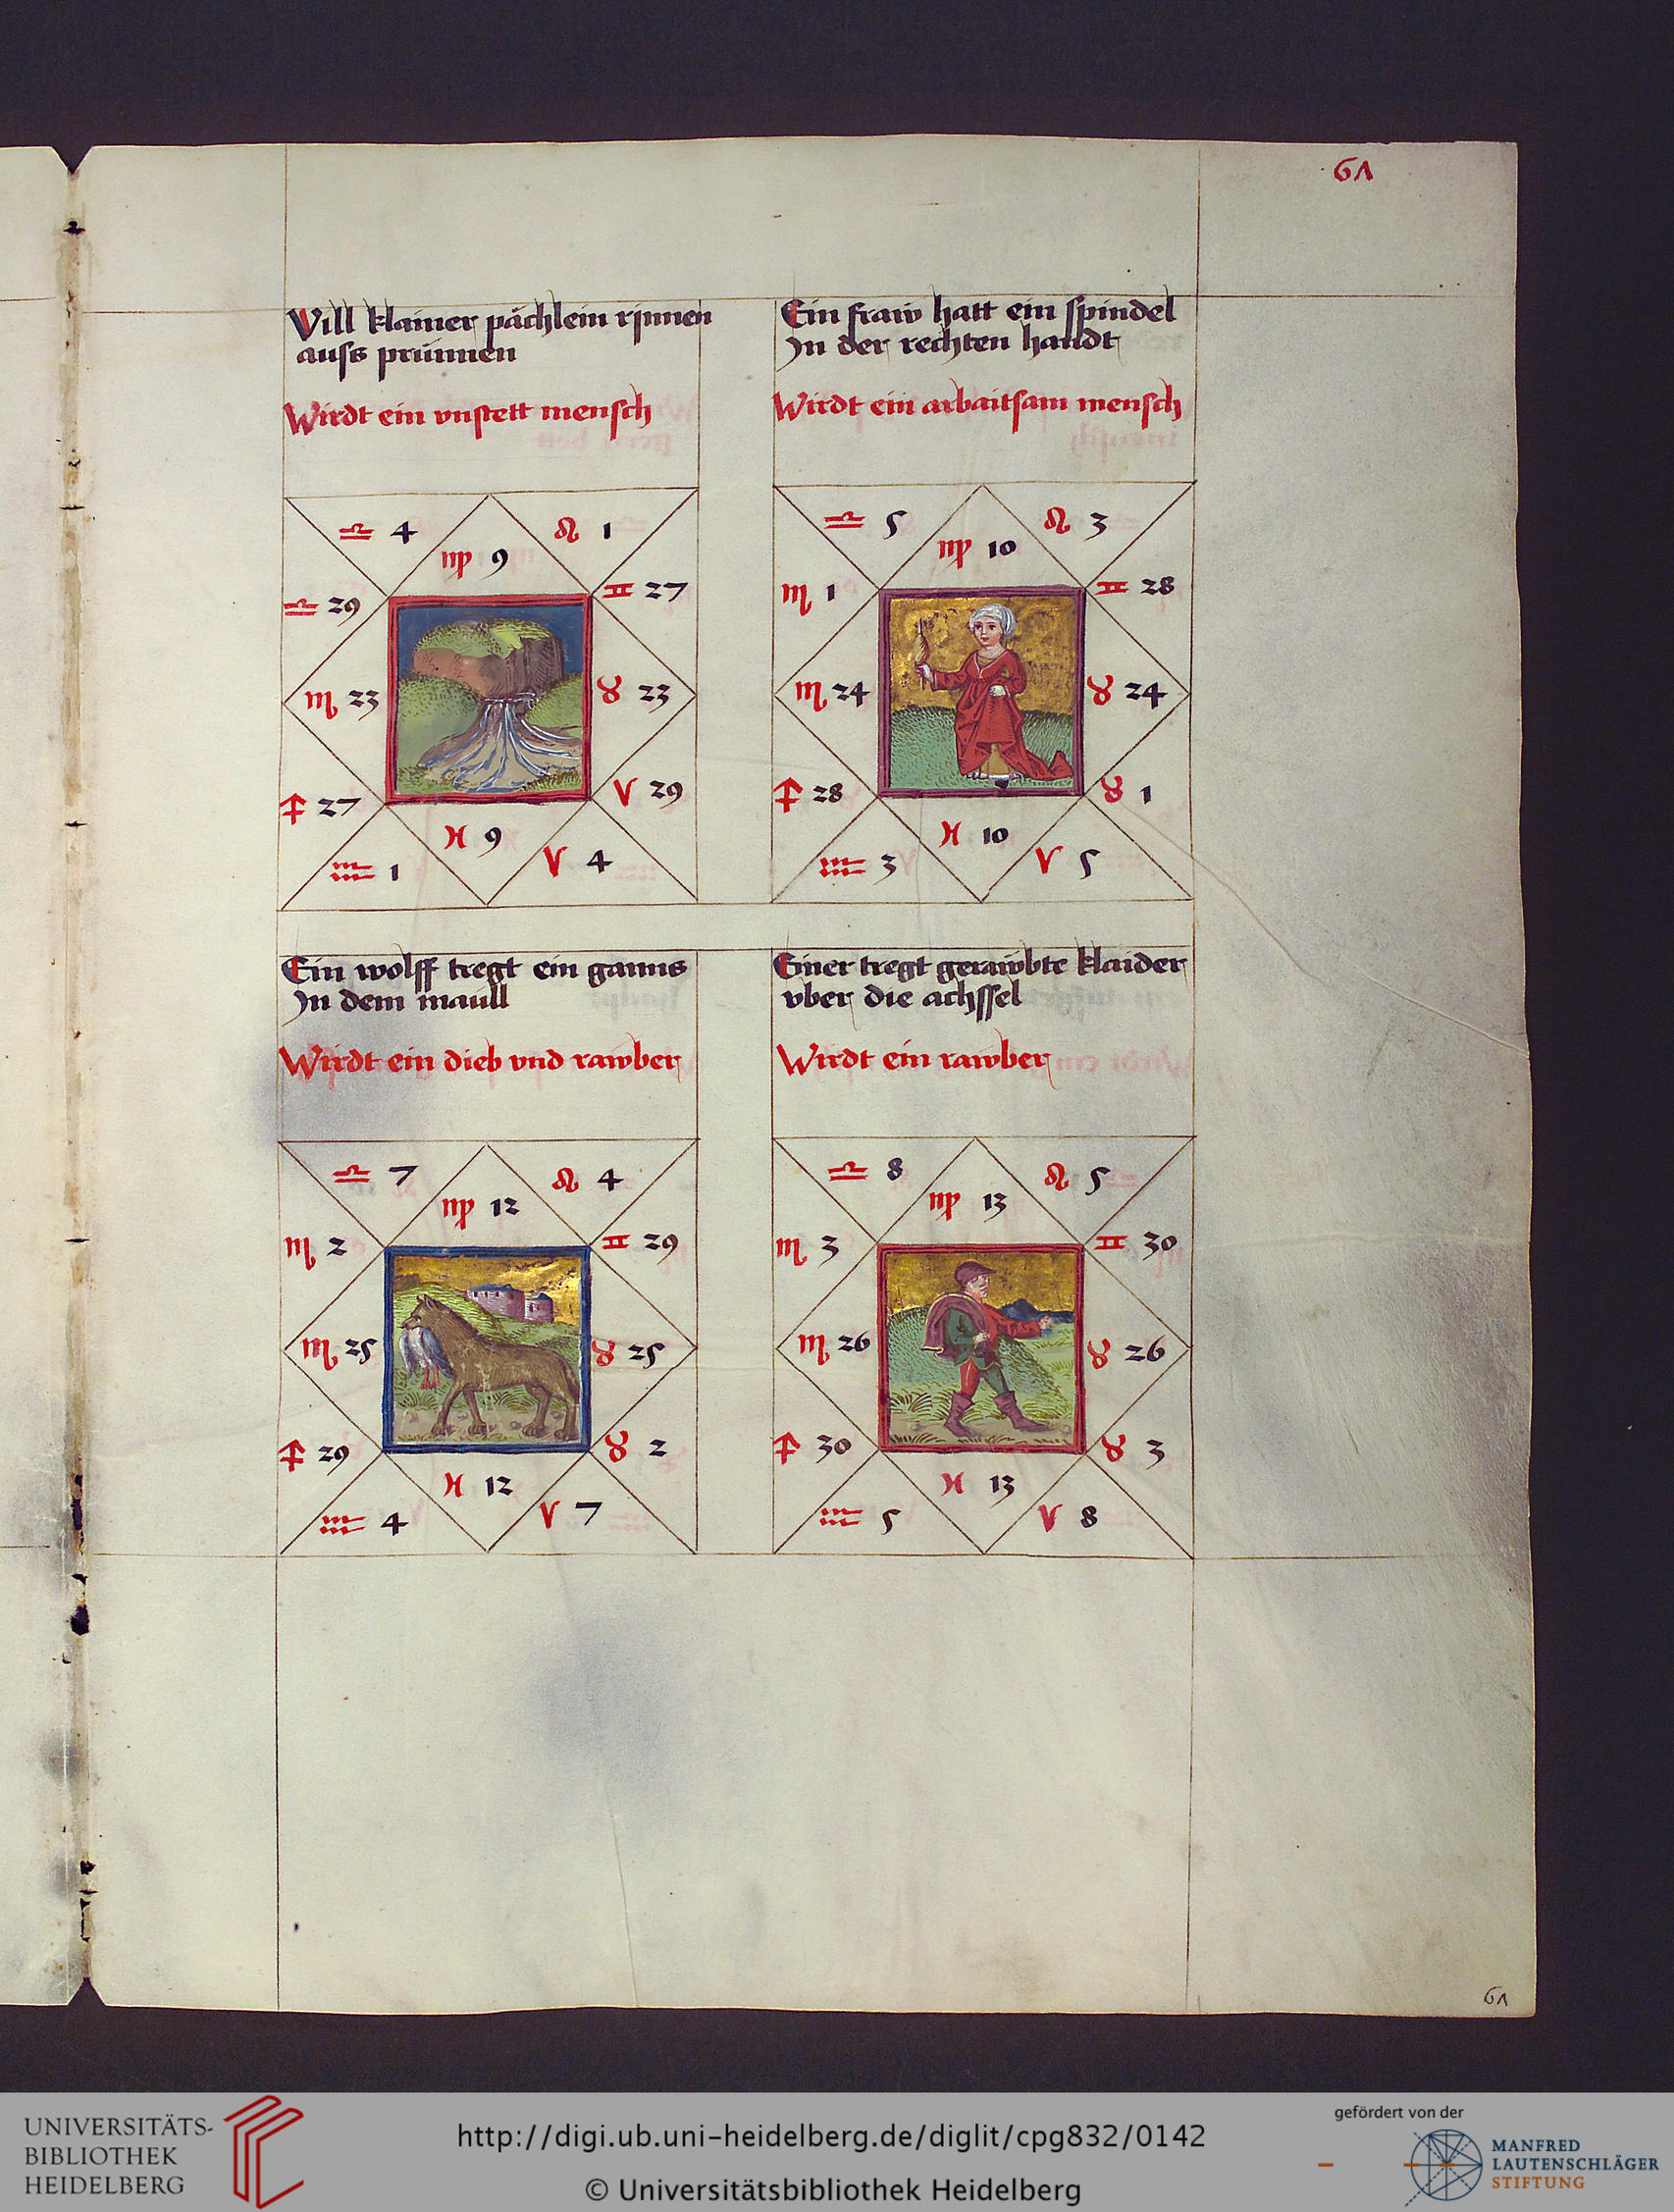 61
Vill klainer pächlein rinnen
auss prünnen
Wirdt ein vnstett mensch
Ein fraw hatt ein spindel
In der rechten handt
Wirdt ein arbaitsam mensch
♎ 4 ♍ 9 ♌ 1
♎ 29 ♊ 27
♏ 23 ♉ 23
♐ 27 ♈ 29
♒ 1 ♓ 9 ♈ 4
♎ 5 ♍ 10 ♌ 3
♏ 1 ♊ 28
♏ 24 ♉ 24
♐ 28 ♉ 1
♒ 3 ♓ 10 ♈ 5
Ein wolff tregt ein ganns
In dem maull
Wirdt ein dieb vnd rawber
Einer tregt gerawbte klaider
vber die achssel
Wirdt ein rawber
♎ 7 ♍ 12 ♌ 4
♏ 2 ♊ 29
♏ 25 ♉ 25
♐ 29 ♉ 2
♒ 4 ♓ 12 ♈ 7
♎ 8 ♍ 13 ♌ 5
♏ 3 ♊ 30
♏ 26 ♉ 26
♐ 30 ♉ 3
♒ 5 ♓ 13 ♈ 8
61
UNIVERSITÄTS-
BIBLIOTHEK
HEIDELBERG
http://digi.ub.uni-heidelberg.de/diglit/cpg832/0142
© Universitätsbibliothek Heidelberg
gefördert von der
MANFRED
LAUTENSCHLÄGER
STIFTUNG